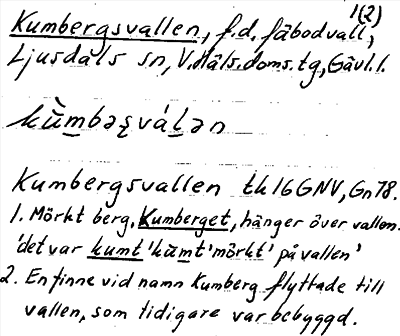 1(2)
Kumbergsvallen, f.d. fäbodvall,
Ljusdals sn, V.Häls.doms.tg, Gävl.l.
kùmbəʂválən
Kumbergsvallen tk16GNV, Gn78.
1. Mörkt berg, Kumberget, hänger över vallen.
'det var kumt 'kùmt 'mörkt' på vallen'
2. En finne vid namn Kumberg flyttade till
vallen, som tidigare var bebyggd.